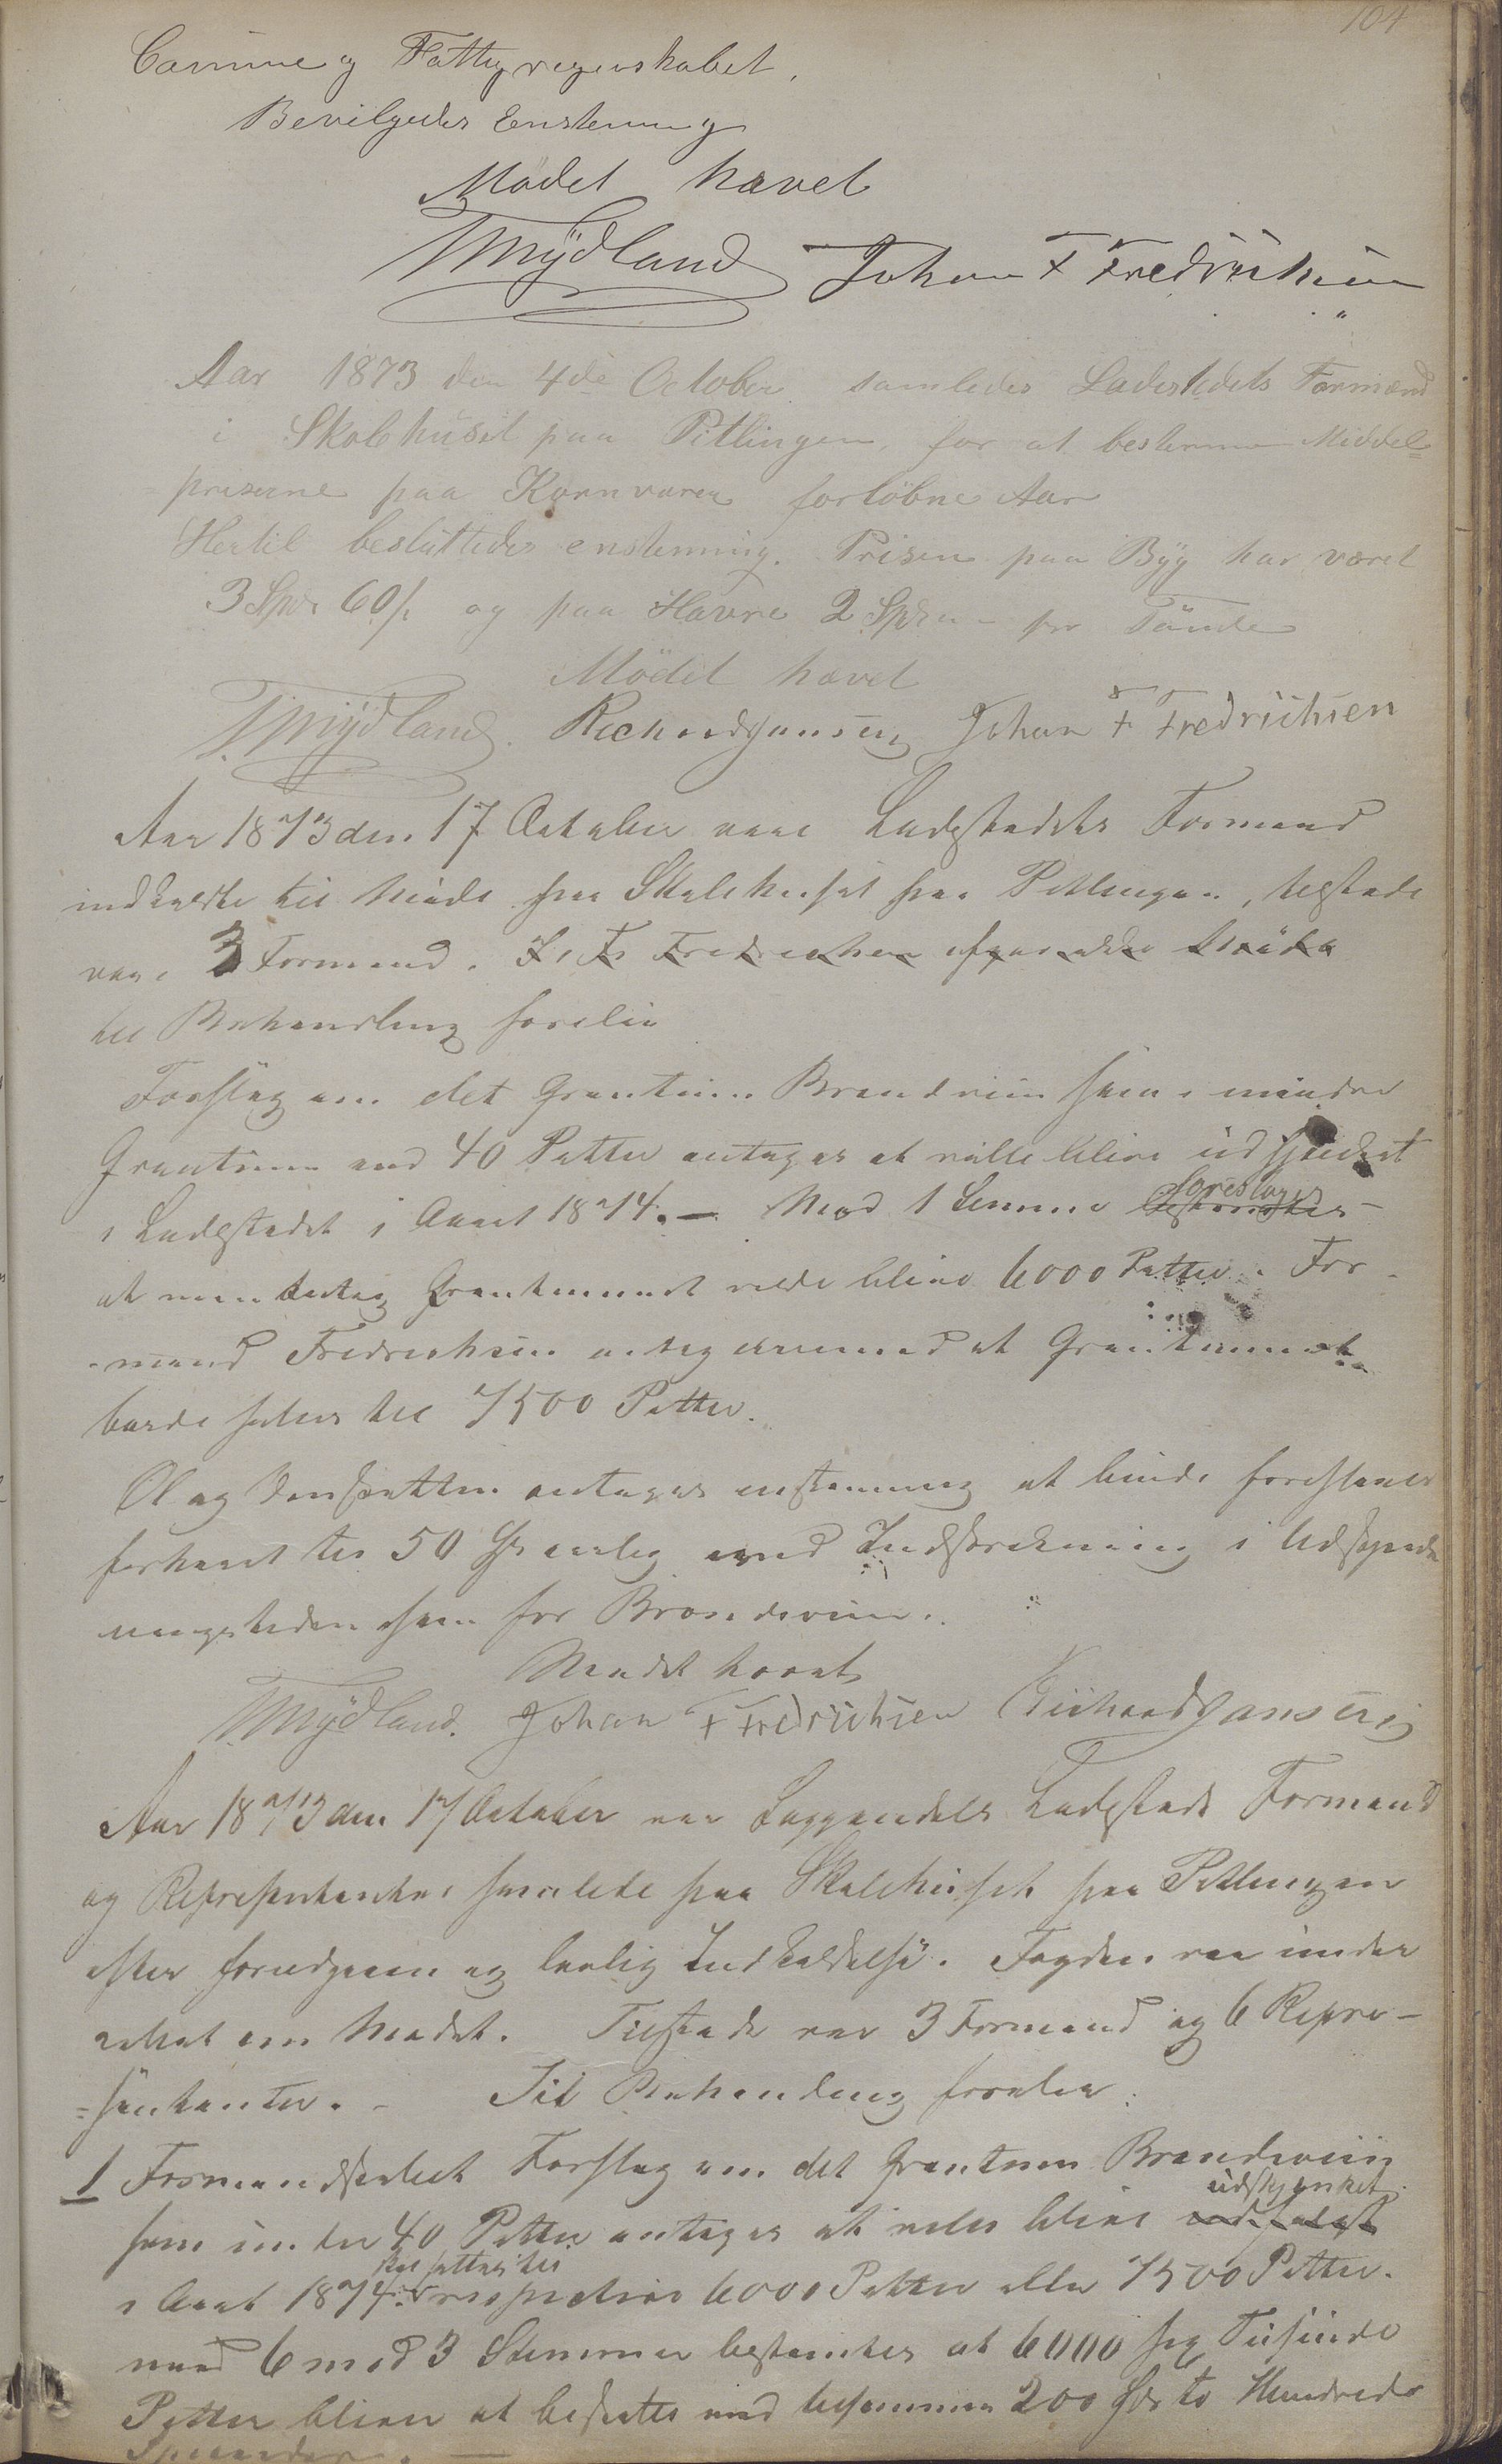 104
Comune og Fattigregnskabet.
Bevilgedes Enstemmig
Mödet hævet
TMydland Johan F Fredrichsen
Aar 1873 den 4de October samledes Ladestedets Formænd
i Skolehuset paa Pitlingen, for at bestemme Middel=
priserne paa Kornvarer forlöbne Aar
Hertil besluttedes enstemmig. Prisen paa Byg har været
3 Spd 60 s og paa Havre 2 Spd pr Tönde
Mödet hævet
TMydland. Richard Jansen Johan F Fredrichsen
Aar 1873 den 17 October vare Ladestedets Formænd
indkaldte til Möde paa Skolehuset paa Pitlingen, tilstede
var 3 Formænd. J. F. Fredrichsen Möde
til Behandling forelaa
Forslag om det Quantum Brændeviin som i mindre
Quantum end 40 Potter antages at ville blive udskjenket
i Ladestedet i Aaret 1874. — Mod 1 Stemme foreslages
at Quantummet vilde blive 6000 Potter. For-
-mand Fredrichsen derimod at Quantummet
burde sættes til 7500 Potter.
Öl og antages enstemmig at burde foreslaaes
til 50 Spd aarlig med Indskrænkning i Udskjænk
ningstiden som for Brændeviin.
Mødet hævet
TMydland. Johan F Fredrichsen Richard Jansen
Aar 1873 den 17 October var Soggendals Ladesteds Formænd
og Repræsentanter samlede paa Skolehuset paa Pitlingen
efter forudgaaen og lovlig Indkaldelse. Fogden var under
rettet om Mødet. Tilstede var 3 Formænd og 6 Repræ-
=sentanter. - Til Behandling forelaa:
1 Formandskabet Forslag om det Quantum Brændeviin
udskjenket
som under 40 Potter antages at ville blive
skal sættes til
i Aaret 1874. respective 6000 Potter eller 7500 Potter.
med 6 mod 3 Stemmer bestemtes at 6000 sex Tusinde
Potter bliver at beskatte med tilsammen 200 Spd to Hundrede
Speciedaler. —